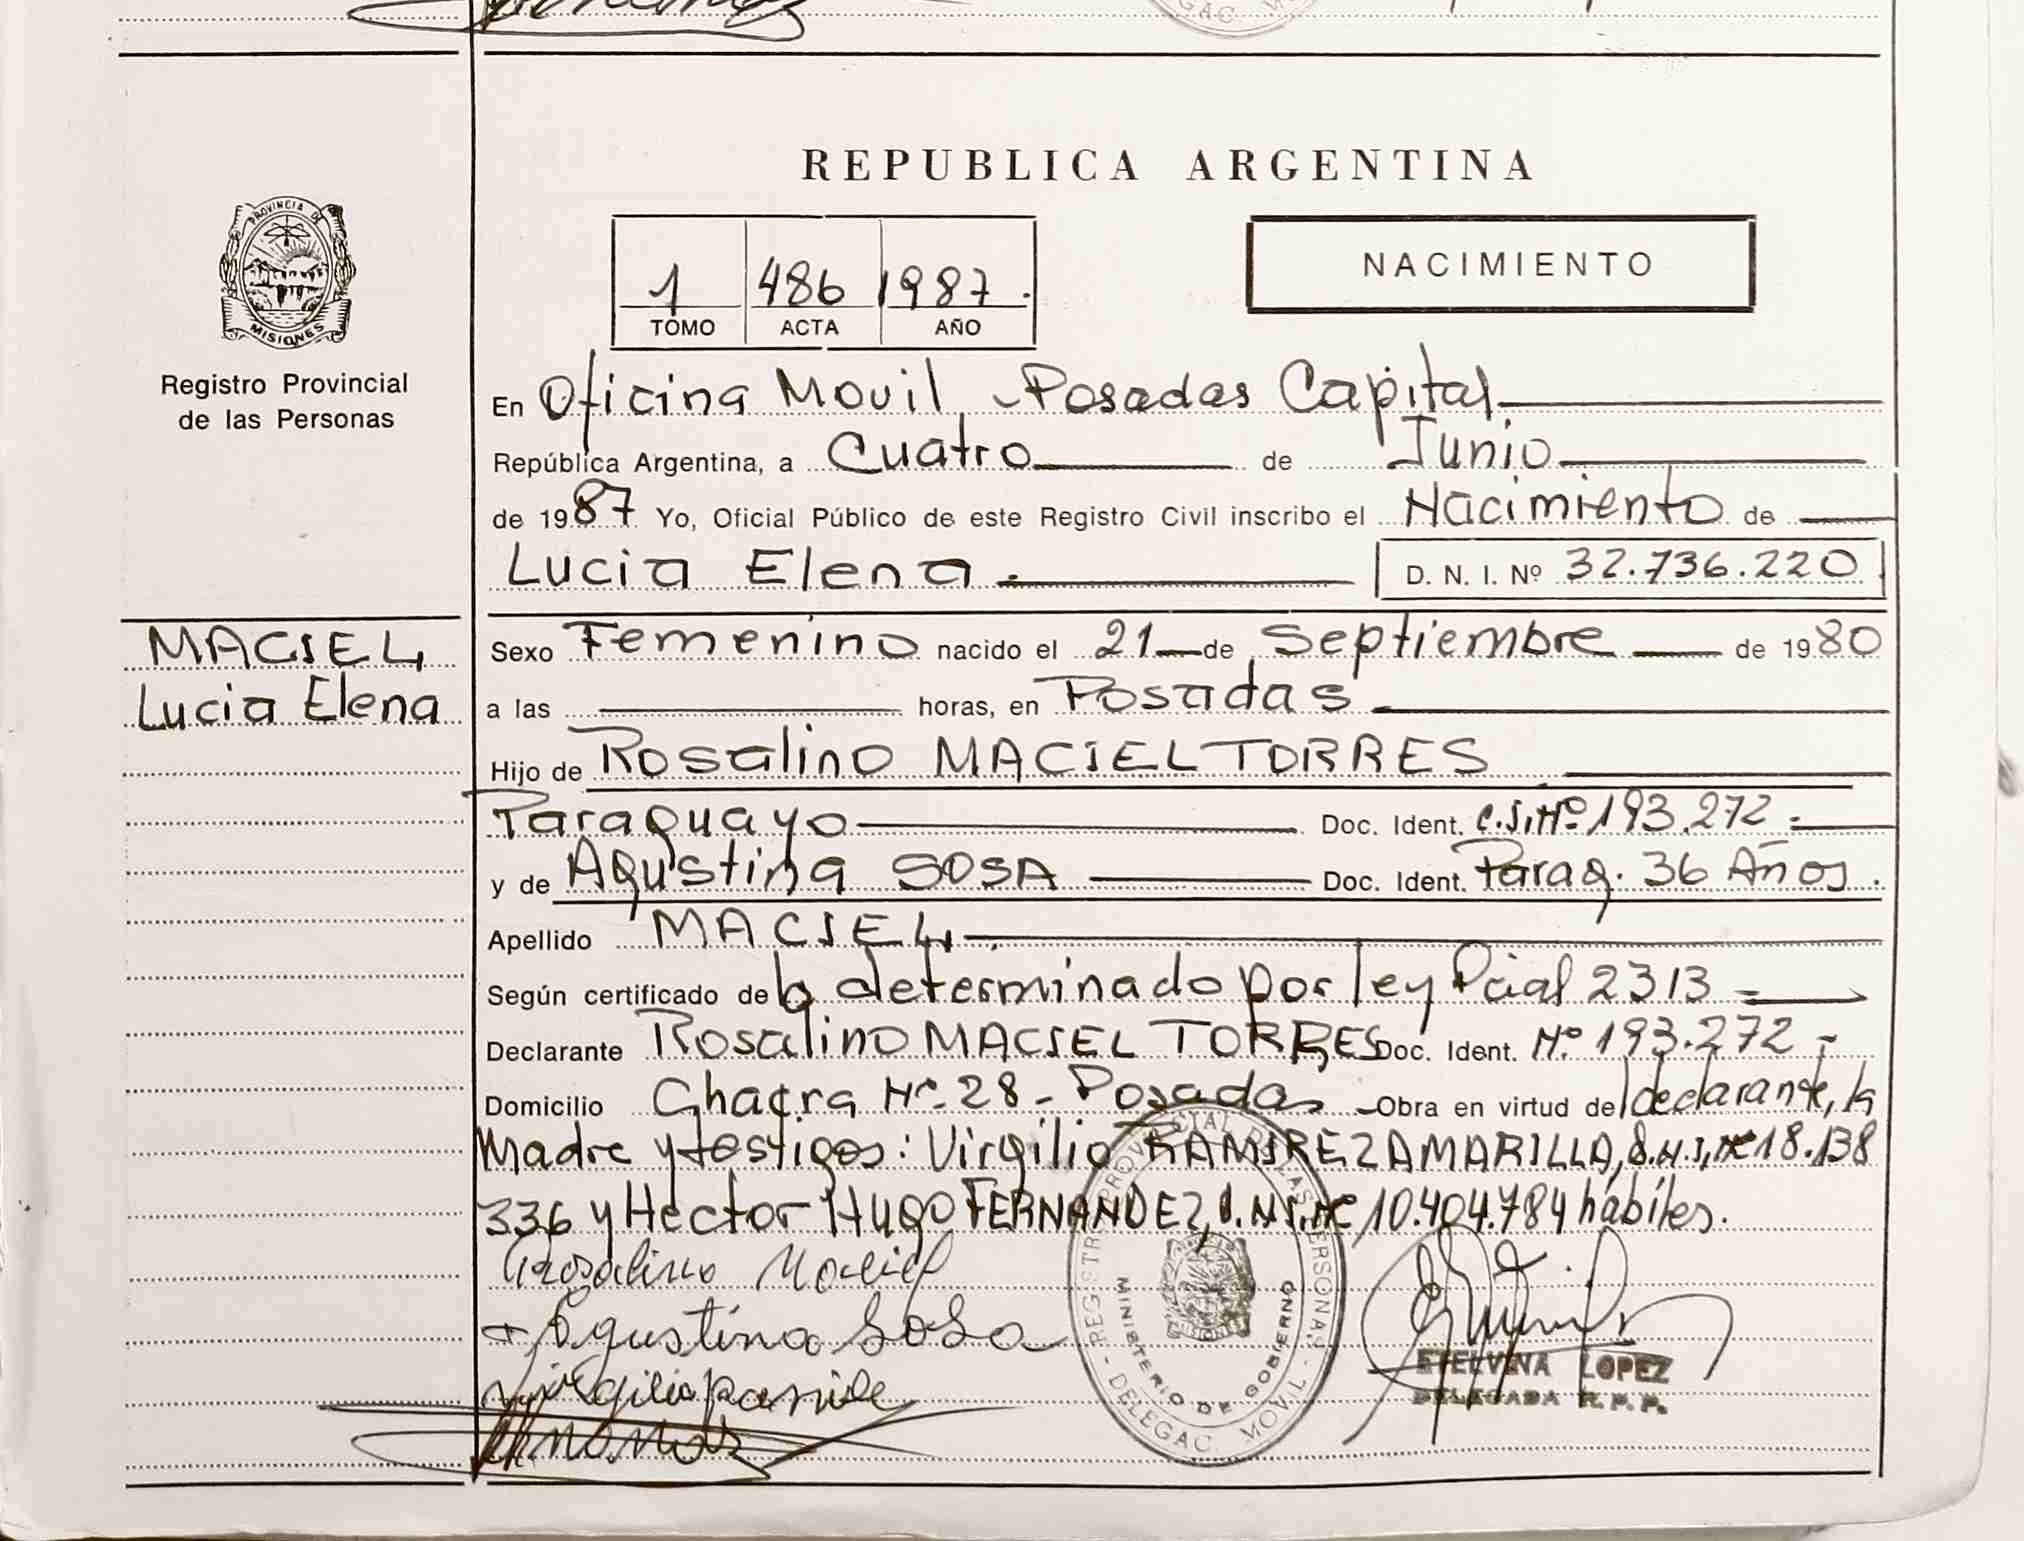 REPUBLICA ARGENTINA
PROVINCIA DE
MISIONES
Registro Provincial
de las Personas
1 486 1987.
TOMO ACTA AÑO
NACIMIENTO
En Oficina Movil - Posadas Capital
República Argentina, a Cuatro de Junio
de 1987 Yo, Oficial Público de este Registro Civil inscribo el Nacimiento de
Lucia Elena. D. N. I. Nº 32.736.220
MACIEL
Lucia Elena
Sexo Femenino nacido el 21 de Septiembre de 1980
a las horas, en Posadas
Hijo de Rosalino MACIEL TORRES
Paraguayo Doc. Ident. C.I.Nº 193.272.-
y de Agustina SOSA Doc. Ident. Parag. 36 Años.
Apellido MACIEL
Según certificado de lo determinado por ley Pcial 2313.-
Declarante Rosalino MACIEL TORRES Doc. Ident. Nº 193.272.-
Domicilio Chacra Nº 28 - Posadas - Obra en virtud del declarante, la
Madre y testigos: Virgilio RAMIREZ AMARILLA, D.N.I. Nº 18.138
336 y Hector Hugo FERNANDEZ, D.N.I. Nº 10.404.784 hábiles.
Rosalino Maciel
Agustina Sosa
Virgilio Ramire
REGISTRO PROVINCIAL DE LAS PERSONAS
MINISTERIO DE GOBIERNO
- DELEGAC. MOVIL -
ETELVINA LOPEZ
DELEGADA R.P.P.